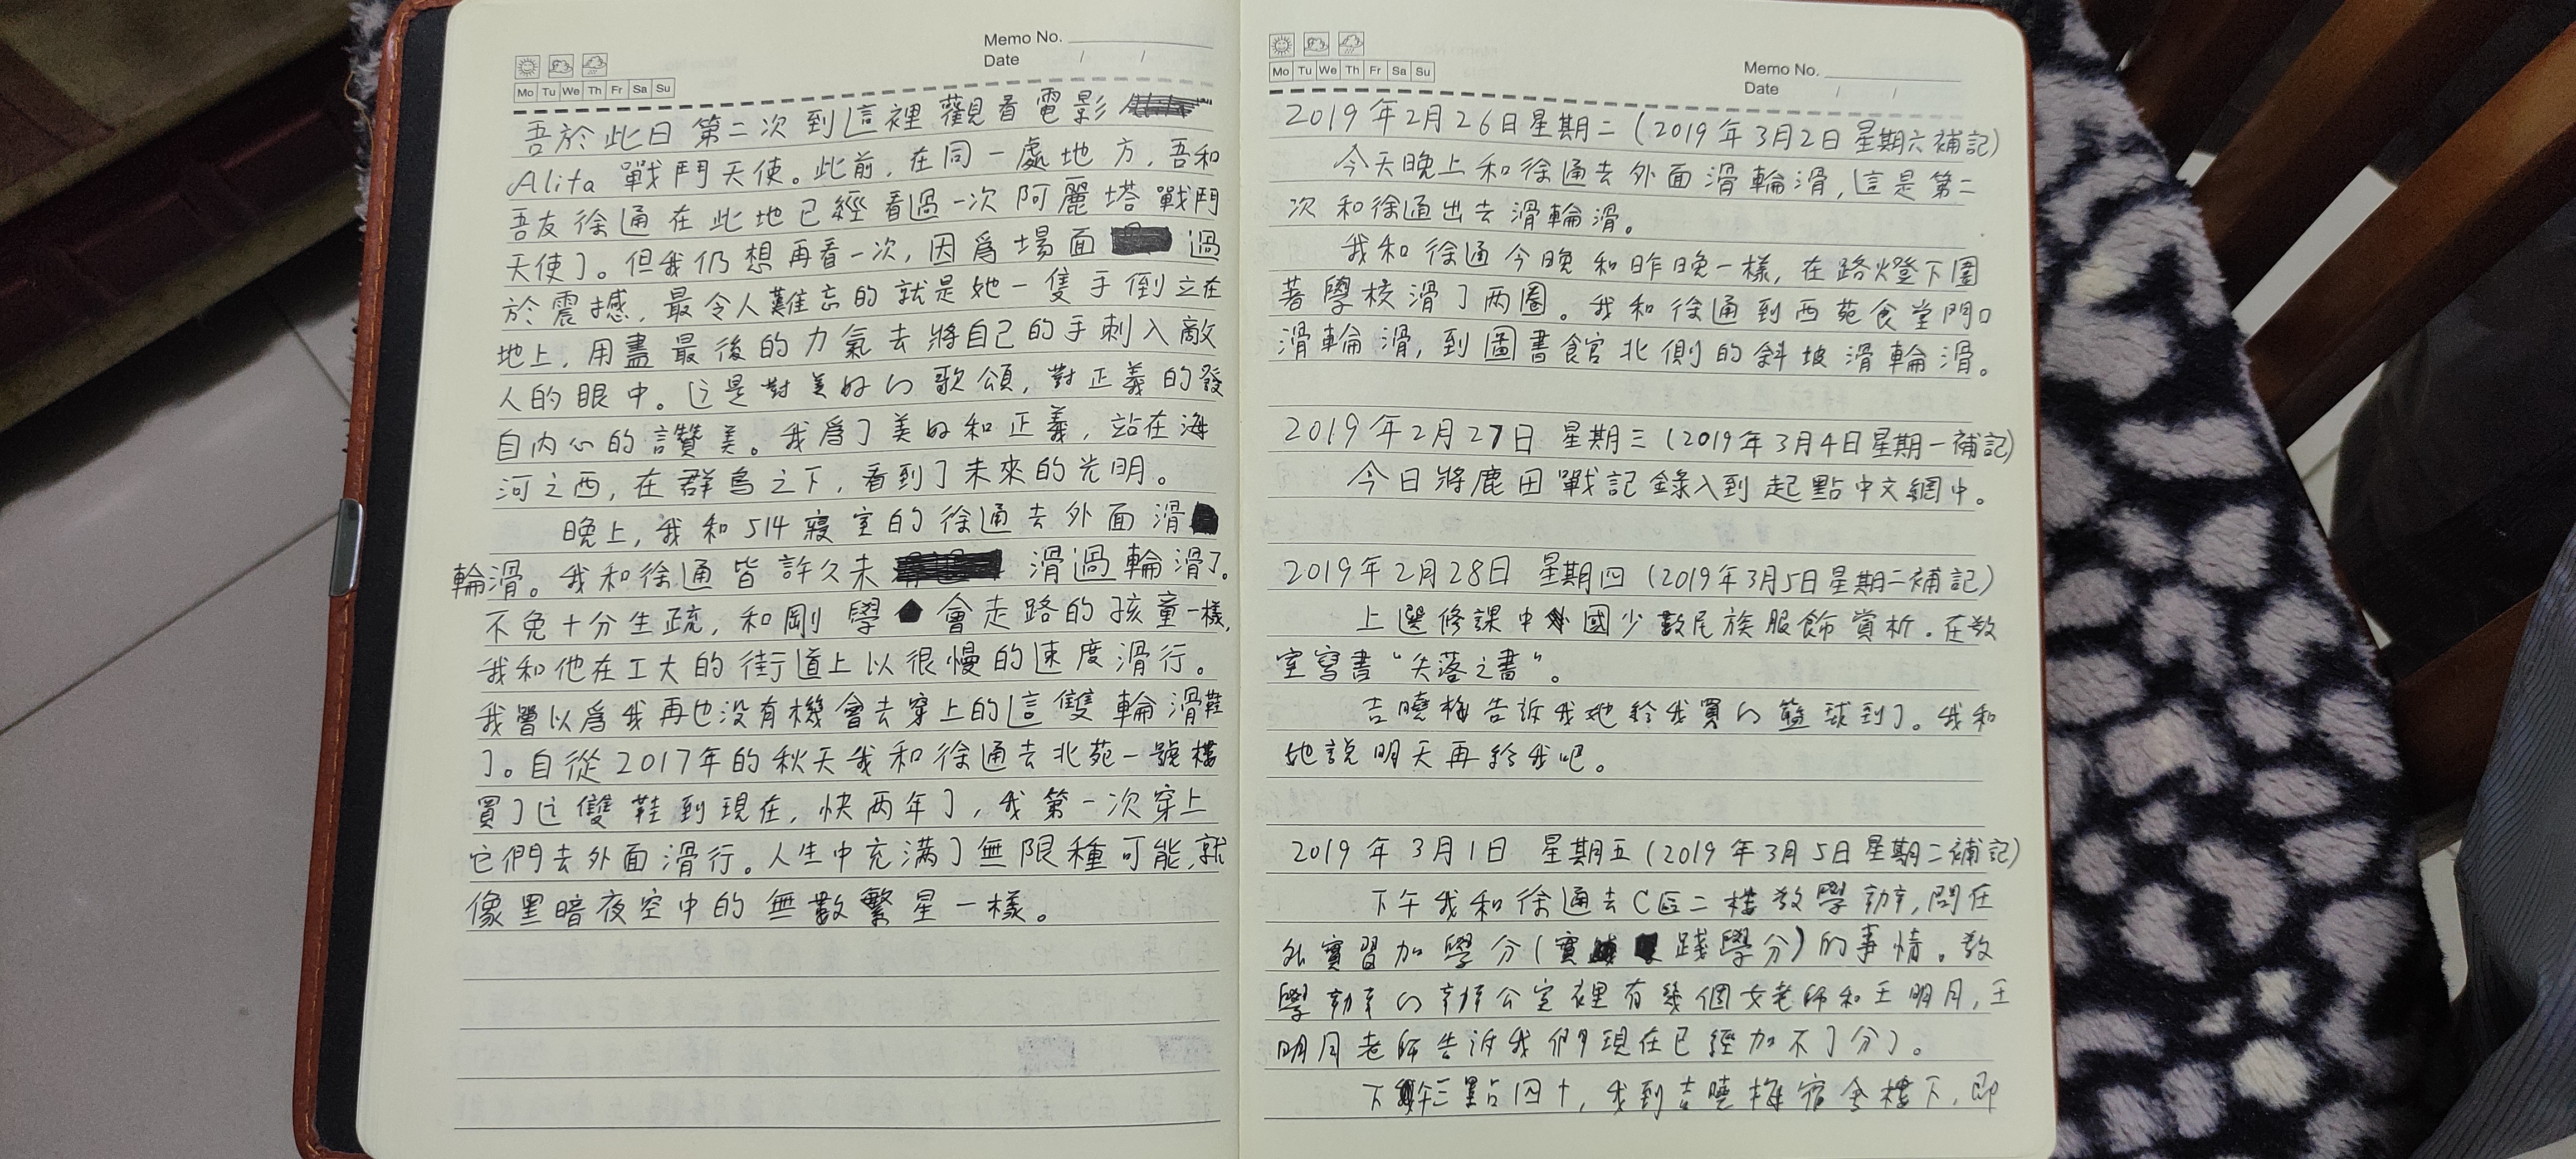 Memo No.
Date / /
Mo Tu We Th Fr Sa Su
吾於此日第二次到這裡觀看電影
Alita 戰鬥天使。此前,在同一處地方,吾和
吾友徐通在此地已經看過一次阿麗塔戰鬥
天使了。但我仍想再看一次,因爲場面過
於震撼,最令人難忘的就是她一隻手倒立在
地上,用盡最後的力氣去將自己的手刺入敵
人的眼中。這是對美好的歌頌,對正義的發
自内心的讚美。我爲了美好和正義,站在海
河之西,在群鳥之下,看到了未來的光明。
晚上,我和514寢室的徐通去外面滑
輪滑。我和徐通皆許久未滑過輪滑了。
不免十分生疏,和剛學會走路的孩童一樣,
我和他在工大的街道上以很慢的速度滑行。
我曾以爲我再也没有機會去穿上的這雙輪滑鞋
了。自從2017年的秋天我和徐通去北苑一號樓
買了這雙鞋到現在,快两年了,我第一次穿上
它們去外面滑行。人生中充滿了無限種可能,就
像黑暗夜空中的無數繁星一樣。
Mo Tu We Th Fr Sa Su
Memo No.
Date / /
2019年2月26日星期二(2019年3月2日星期六補記)
今天晚上和徐通去外面滑輪滑,這是第二
次和徐通出去滑輪滑。
我和徐通今晚和昨晚一樣,在路燈下圍
著學校滑了两圈。我和徐通到西苑食堂門口
滑輪滑,到圖書館北側的斜坡滑輪滑。
2019年2月27日 星期三(2019年3月4日星期一補記)
今日將鹿田戰記錄入到起點中文網中。
2019年2月28日 星期四(2019年3月5日星期二補記)
上選修課中國少數民族服飾賞析。在教
室寫書“失落之書”。
吉曉梅告訴我她給我買的籃球到了。我和
她說明天再給我吧。
2019年3月1日 星期五(2019年3月5日星期二補記)
下午我和徐通去C區二樓教學辦,問在
外實習加學分(實踐學分)的事情。教
學辦的辦公室裡有幾個女老師和王明月,王
明月老師告訴我們現在已經加不了分了。
下午三點四十,我到吉曉梅宿舍樓下,即